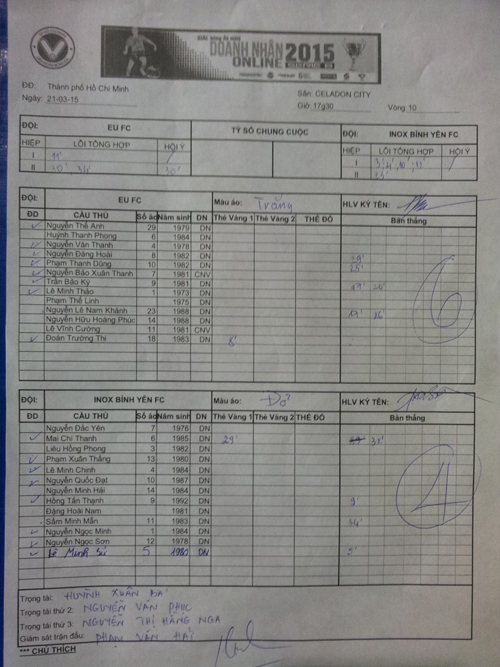 GIẢI BÓNG ĐÁ MINI
DOANH NHÂN 2015
ONLINE
ĐD: Thành phố Hồ Chí Minh
Ngày: 21-03-15
Sân: CELADON CITY
Giờ: 17g30 Vòng 10
ĐỘI: EU FC TỶ SỐ CHUNG CUỘC ĐỘI: INOX BÌNH YÊN FC
HIỆP LỖI TỔNG HỢP HỘI Ý HIỆP LỖI TỔNG HỢP HỘI Ý
I 11' I
II 30' II
ĐỘI: EU FC Màu áo: Trắng HLV KÝ TÊN:
ĐD CẦU THỦ Số áo Năm sinh DN Thẻ Vàng 1 Thẻ Vàng 2 THẺ ĐỎ Bàn thắng
Nguyễn Thế Anh 29 1979 DN
Huỳnh Thanh Phong 6 1984 DN
Nguyễn Văn Thanh 4 1978 DN
Nguyễn Đăng Hoài 8 1982 DN
Phạm Thanh Dũng 10 1982 DN 25'
Nguyễn Bảo Xuân Thanh 7 1981 CNV
Trần Bảo Kỳ 9 1981 DN
Lê Minh Thảo 1 1973 DN
Phạm Thế Linh 1975 DN
Nguyễn Lê Nam Khánh 23 1988 DN
Nguyễn Hữu Hoàng Phúc 14 1988 DN
Lê Vĩnh Cường 11 1981 CNV
Đoàn Trường Thi 18 1983 DN 8'
6
ĐỘI: INOX BÌNH YÊN FC Màu áo: Đỏ HLV KÝ TÊN:
ĐD CẦU THỦ Số áo Năm sinh DN Thẻ Vàng 1 Thẻ Vàng 2 THẺ ĐỎ Bàn thắng
Nguyễn Đắc Yên 7 1976 DN
Mai Chí Thanh 6 1985 DN 29'
Liêu Hồng Phong 3 1982 DN
Phạm Xuân Thắng 13 1980 DN
Lê Minh Chinh 4 1984 DN
Nguyễn Quốc Đạt 10 1987 DN
Nguyễn Minh Hải 14 1984 DN
Hồng Tấn Thạnh 9 1992 DN 9'
Đặng Hoài Nam 1981 DN
Sầm Minh Mẫn 11 1983 DN 34'
Nguyễn Ngọc Minh 1 1984 DN
Nguyễn Ngọc Sơn 12 1978 DN
Lê Minh 5 1980 DN 5'
4
Trọng tài: HUỲNH XUÂN
Trọng tài thứ 2: NGUYỄN VĂN PHÚC
Trọng tài thứ 3: NGUYỄN THỊ HẰNG NGA
Giám sát trận đấu: PHẠM VĂN HẢI
*** CHÚ THÍCH